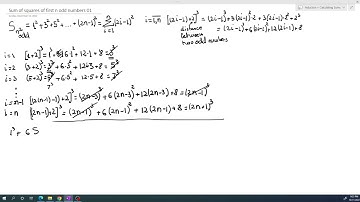 Sum of squares of first n odd numbers 01
S_n odd = 1² + 3² + 5² + ... + (2n-1)² = Σ_{i=1}^{n} (2i-1)² i = 1,n [(2i-1)+2]³ = (2i-1)³ + 3(2i-1)²·2 + 3(2i-1)·2² + 2³
distance between two odd numbers = (2i-1)³ + 6(2i-1)² + 12(2i-1) + 8
i = 1 [1+2]³ = 1³ + 6·1² + 12·1 + 8 = 3³
i = 2 [3+2]³ = 3³ + 6·3² + 12·3 + 8 = 5³
i = 3 [5+2]³ = 5³ + 6·5² + 12·5 + 8 = 7³
i = n-1 [(2(n-1)-1)+2]³ = (2n-3)³ + 6(2n-3)² + 12(2n-3) + 8 = (2n-1)³
i = n [(2n-1)+2]³ = (2n-1)³ + 6(2n-1)² + 12(2n-1) + 8 = (2n+1)³
1³ + 6S